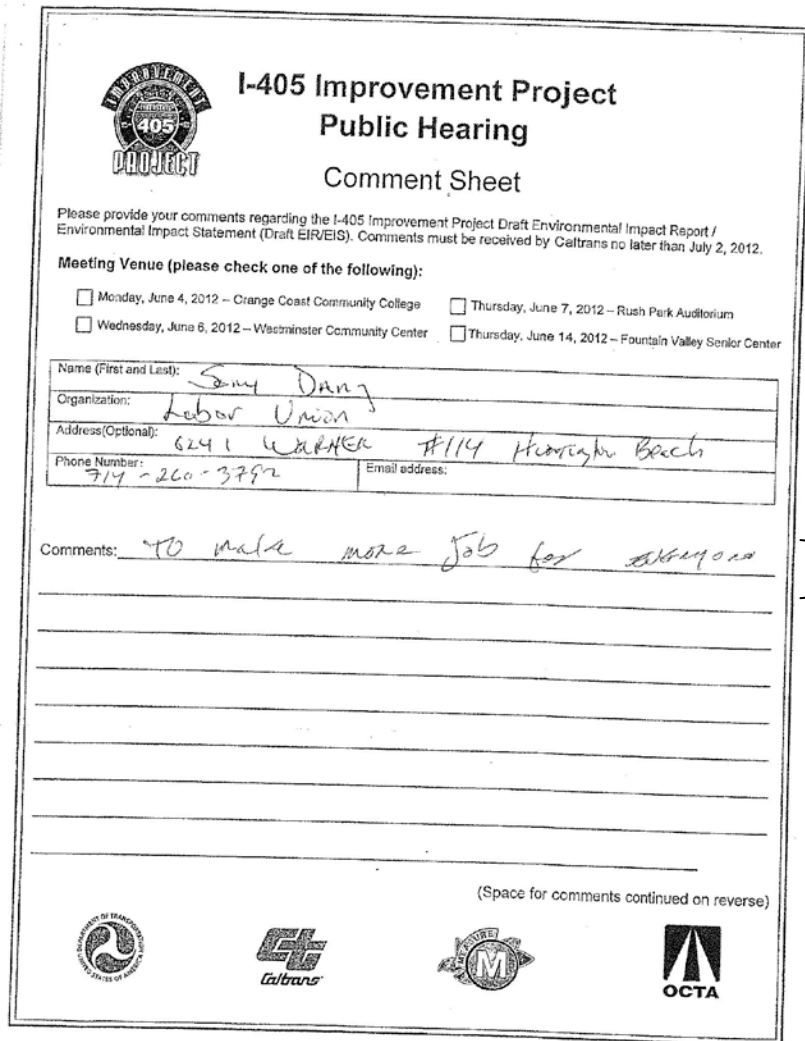 IMPROVEMENT
405
PROJECT
I-405 Improvement Project
Public Hearing
Comment Sheet
Please provide your comments regarding the I-405 Improvement Project Draft Environmental Impact Report /
Environmental Impact Statement (Draft EIR/EIS). Comments must be received by Caltrans no later than July 2, 2012.
Meeting Venue (please check one of the following):
Monday, June 4, 2012 – Orange Coast Community College
Thursday, June 7, 2012 – Rush Park Auditorium
Wednesday, June 6, 2012 – Westminster Community Center
Thursday, June 14, 2012 – Fountain Valley Senior Center
Name (First and Last): Dang
Organization: Labor Union
Address(Optional): 6241 WARNER #114 Huntington Beach
Phone Number: 714-260-3792
Email address:
Comments: TO make more Job for everyone
(Space for comments continued on reverse)
DEPARTMENT OF TRANSPORTATION
UNITED STATES OF AMERICA
Caltrans
MEASURE
M
OCTA